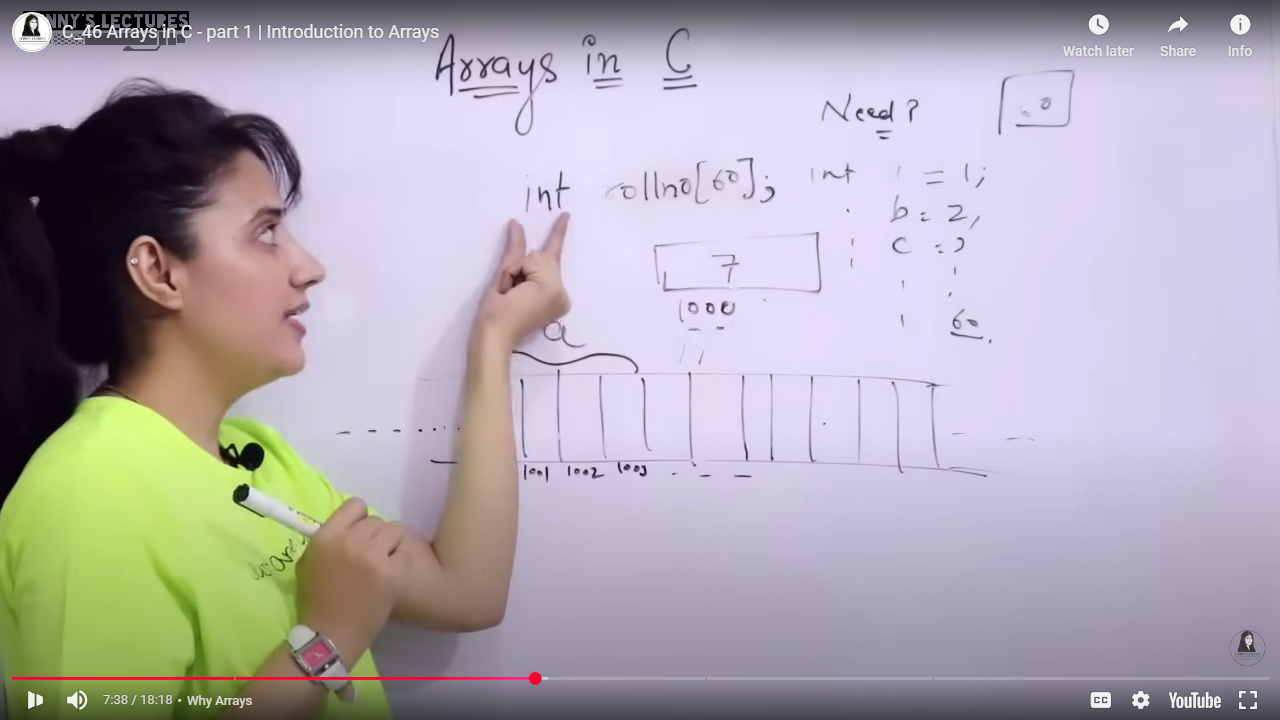 JENNY'S LECTURES
C_46 Arrays in C - part 1 | Introduction to Arrays
Watch later
Share
Info
Arrays in C
Need?
int rollno[60]; int = 1;
b = 2,
c =
7
1000
60.
a
1001 1002 1003 - - -
7:38 / 18:18 • Why Arrays
CC
YouTube